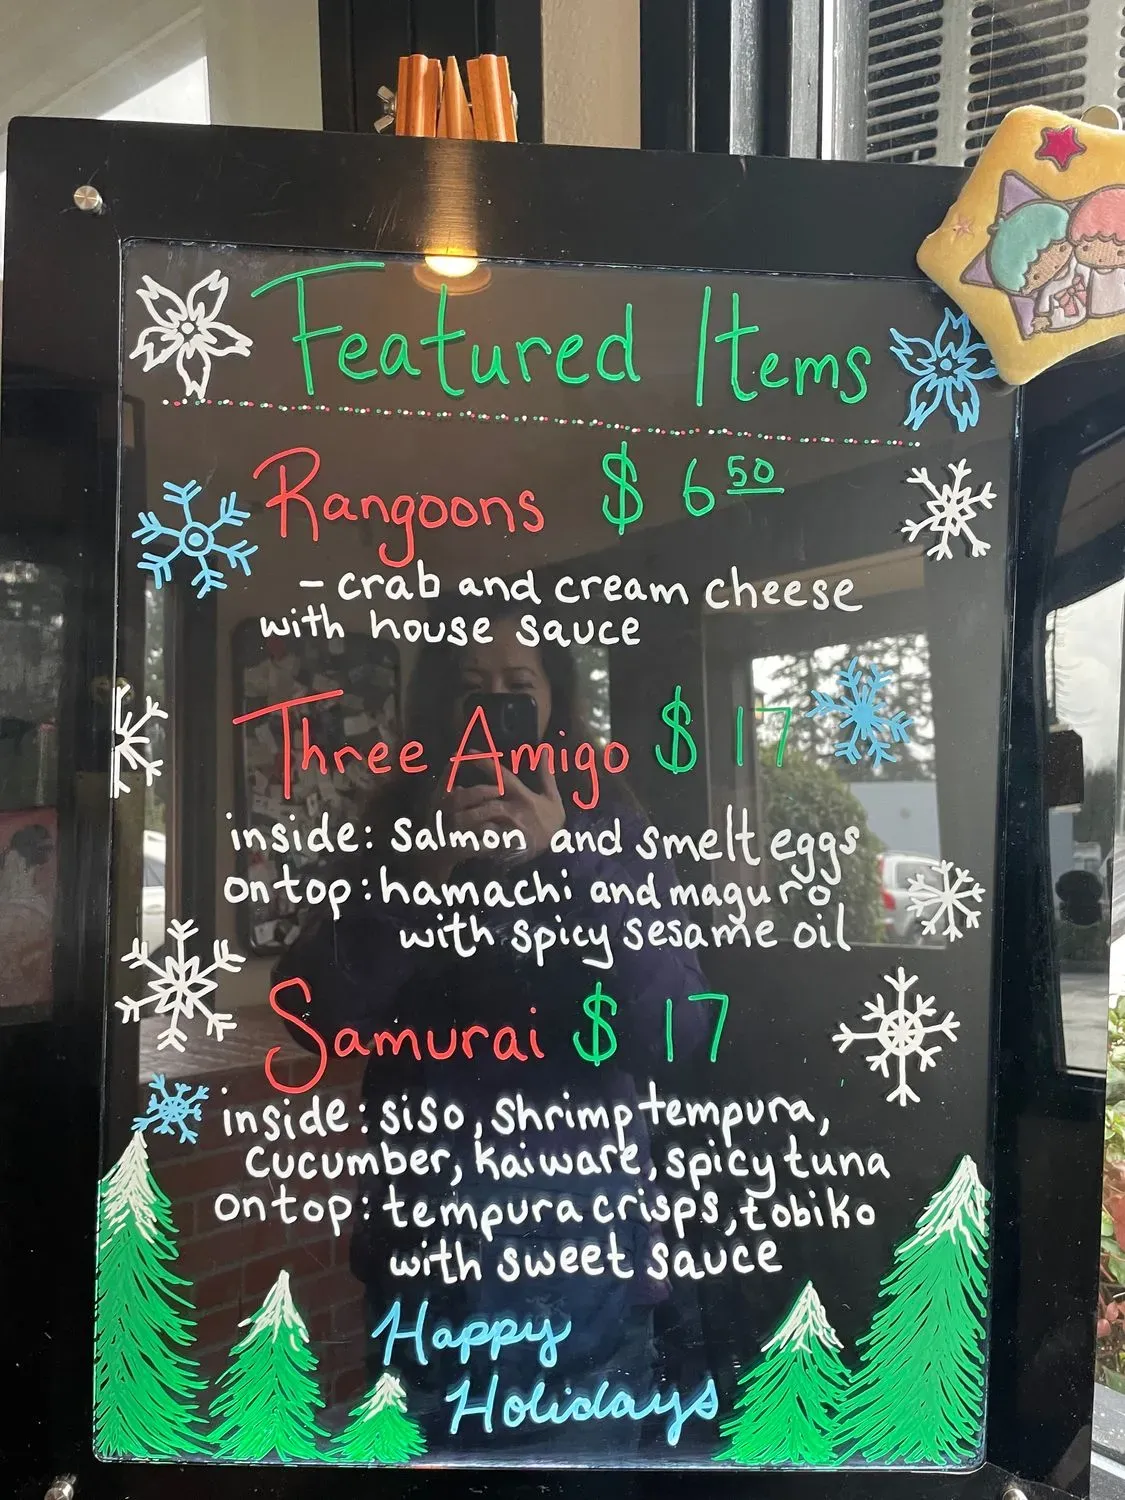 Featured Items
Rangoons $ 6 50
- crab and cream cheese
with house sauce
Three Amigo $ 17
inside: salmon and smelt eggs
on top: hamachi and maguro
with spicy sesame oil
Samurai $ 17
inside: siso, shrimp tempura,
cucumber, kaiware, spicy tuna
on top: tempura crisps, tobiko
with sweet sauce
Happy
Holidays